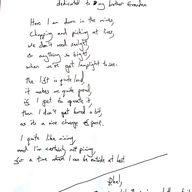 dedicated to my brother Brandon
Here I am down in the mines,
Chopping and picking at lines,
we don't need sunlight,
or anything so bright,
when we've got lamplight to see.
The lift is quite loud,
it makes me quite proud,
if I get to operate it,
then I don't get bored a bit,
as it's a nice change of pace.
I quite like mining,
and I'm certainly not pining,
for a time when I can be outside at last